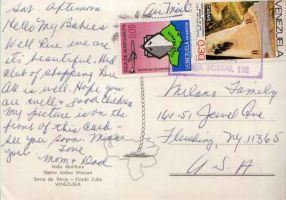 Sat. Afternoon
Air Mail
Hello My Babies
Well Here we are
it's beautiful. And
alot of shopping Here
All is well. Hope you
are well & Good Children
My picture is on the
front of this Card
see you soon. Miss
you Love
Mom & Dad
India Motilona
Native Indian Woman
Sierra de Perija - Estado Zulia
VENEZUELA
0,05
VENEZUELA
VENEZUELA
0.30
POSTAL 116
Milano Family
161-51 Jewel Ave
Flushing, Ny. 11365
U.S.A